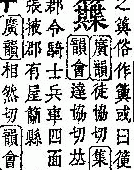 之俗作或曰
廣韻徒協切集
韻會達協切𠀤
郡令騎士兵車四面
張掖郡有屋蘭縣
廣韻相然切韻會